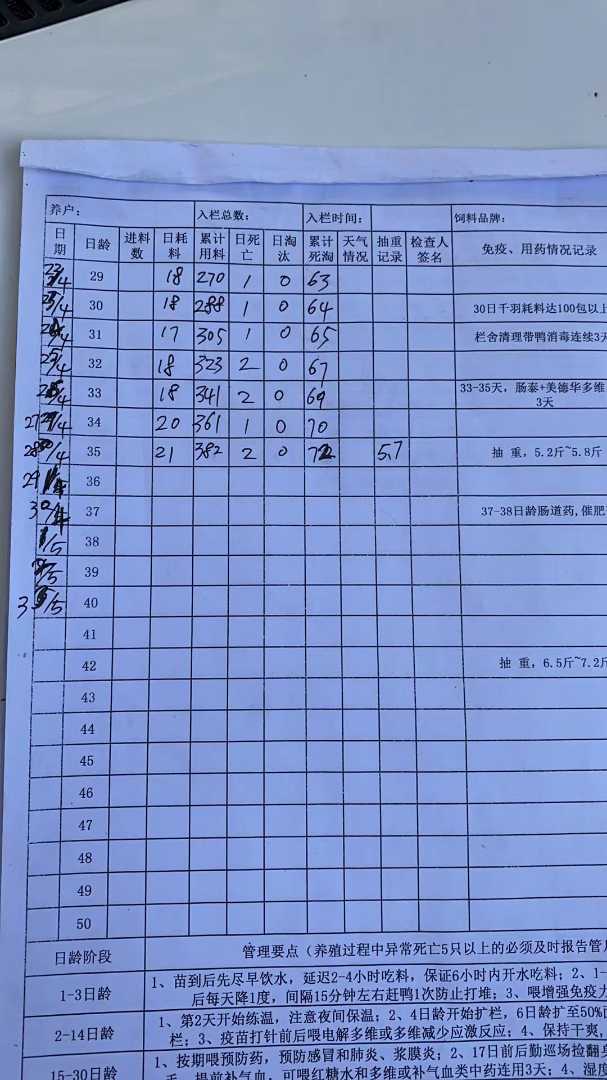 养户： 入栏总数： 入栏时间： 饲料品牌：
日期 日龄 进料数 日耗料 累计用料 日死亡 日淘汰 累计死淘 天气情况 抽重记录 检查人签名 免疫、用药情况记录
29 18 270 1 0 63
30 18 288 1 0 64 30日千羽耗料达100包以上
31 17 305 1 0 65 栏舍清理带鸭消毒连续3天
32 18 323 2 0 67
33 18 341 2 0 69 33-35天，肠泰+美德华多维
3天
34 20 361 1 0 70
35 21 382 2 0 72 5.7 抽 重，5.2斤~5.8斤
36
37 37-38日龄肠道药,催肥
38
39
40
41
42 抽 重，6.5斤~7.2斤
43
44
45
46
47
48
49
50
日龄阶段 管理要点（养殖过程中异常死亡5只以上的必须及时报告管
1-3日龄 1、苗到后先尽早饮水，延迟2-4小时吃料，保证6小时内开水吃料；2、1-
后每天降1度，间隔15分钟左右赶鸭1次防止打堆；3、喂增强免疫力
2-14日龄 1、第2天开始练温，注意夜间保温；2、4日龄开始扩栏，6日龄扩至50%
栏；3、疫苗打针前后喂电解多维或多维减少应激反应；4、保持干爽，
15-30日龄 1、按期喂预防药，预防感冒和肺炎、浆膜炎；2、17日前后勤巡场捡翻身
提前补气血，可喂红糖水和多维或补气血类中药连用3天；4、湿度